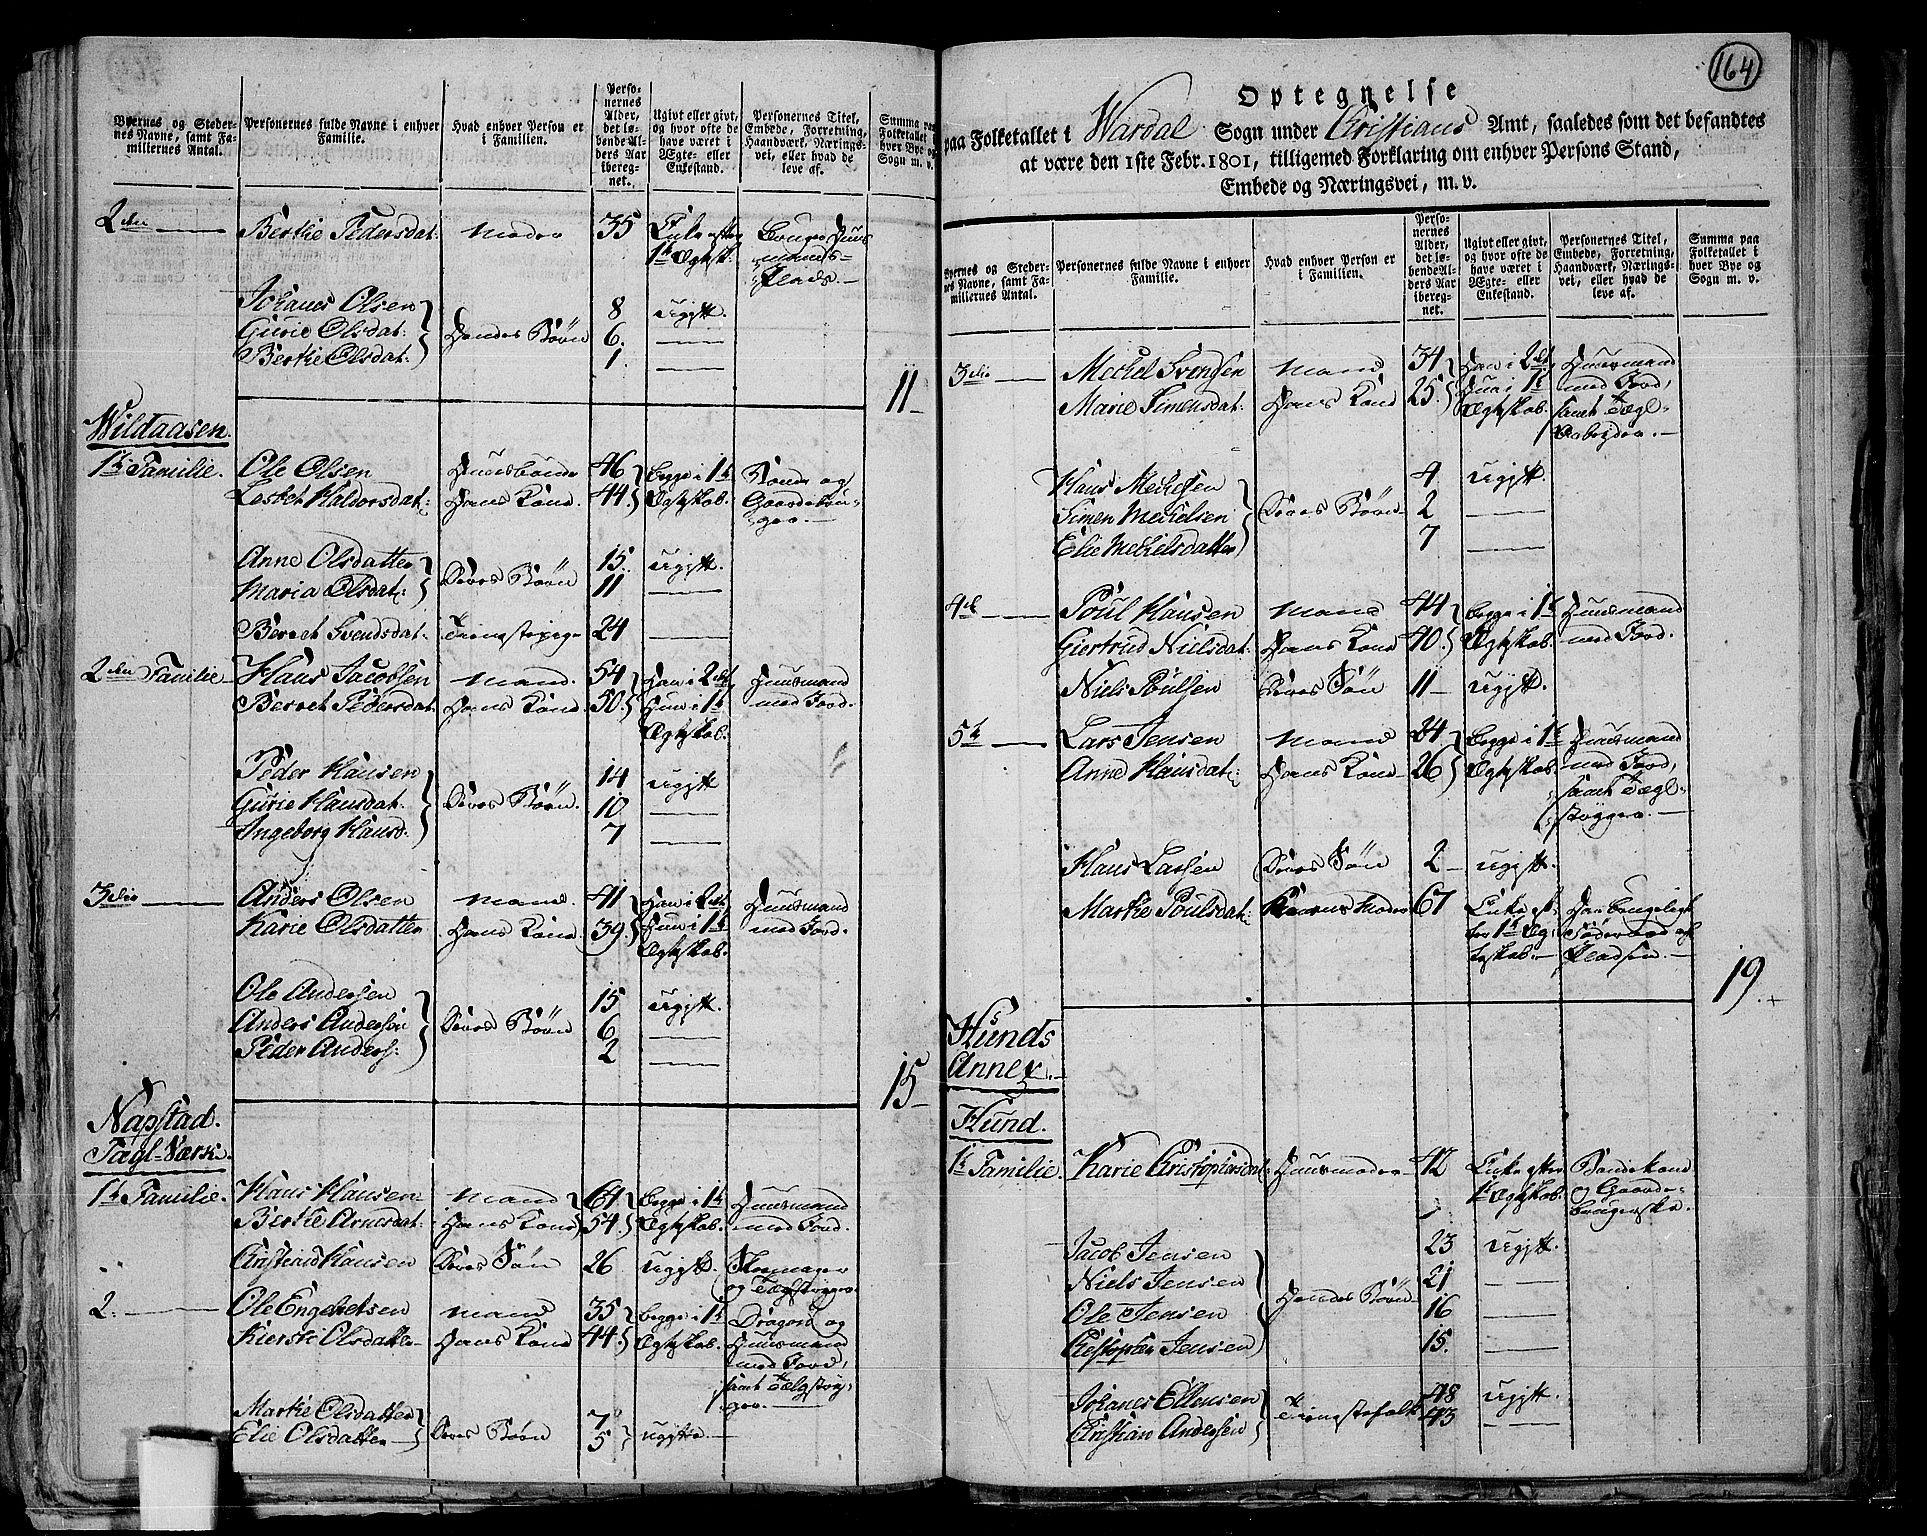 Byernes og Steder-
nes Navne, samt Fa-
miliernes Antal.
Personernes fulde Navne i enhver
Familie.
Hvad enhver Person er
i Familien.
Perso-
nernes
Alder,
det lø-
bende Al-
ders Aar
iberegn-
net.
Ugivt eller givt,
og hvor ofte de
have været i
Ægte- eller
Enkestand.
Personernes Titel,
Embede, Forretning,
Haandværk, Nærings-
vei, eller hvad de
leve af.
Summa paa
Folketallet i
hver Bye og
Sogn m. v.
2den Berthe Pedersdat: Moder 35 Enke efter bruger Huus
1te Ægtsk: mands
Plads.
Johanes Olsen 8 ugivt.
Gurie Olsdat: Hendes Børn 6.
Berthe Olsdat: 1.
11
Wildaasen.
1te Familie. Ole Olsen Huusbonde 46 begge i 1te Bonde og
Lesbet Haldorsdat: Hans Kone. 44. Ægtskab. Gaardebru-
ger.
Anne Olsdatter 15. ugivt.
Maria Olsdat: Deres Børn 11
Beret Svendsdat: Tienestepige 24
2den Familie Hans Jacobsen Mand. 54 Han i 2det Huusmand
Beret Pedersdat: Hans Kone. 50. Hun i 1te med Jord.
Ægtskab.
Peder Hansen 14 ugivt
Gurie Hansdat: Deres Børn. 10
Ingeborg Hansd: 7
3die Anders Olsen Mand. 41 Han i 2det Huusmand
Karie Olsdatter Hans Kone 39. Hun i 1te med Jord.
Ægtskab.
Ole Andersen 15 ugivt
Anders Andersen Deres Børn 6
Peder Anders: 2
15
Napstad.
Tægl-Værk.
1te Familie. Hans Hansen Mand 61 begge i 1te Huusmand
Berthe Arnesdat: Hans Kone 54. Ægtskab. med Jord.
Christian Hansen Deres Søn 26 ugivt. Skomager
og Tægl
2. Ole Engebretsen Mand 35 begge i 1te Dragon og
Kierstie Olsdatter Hans Kone 44. Ægtskab. Huusmand
med Jord,
samt
Marthe Olsdatter 7
Elie Olsdatter Deres Børn 5 ugivte.
164
Optegnelse
paa Folketallet i Wardal Sogn under Cristians Amt, saaledes som det befandtes
at være den 1ste Febr. 1801, tilligemed Forklaring om enhver Persons Stand,
Embede og Næringsvei, m. v.
Byernes og Steder-
nes Navne, samt Fa-
miliernes Antal.
Personernes fulde Navne i enhver
Familie.
Hvad enhver Person er
i Familien.
Perso-
nernes
Alder,
det lø-
bende Al-
ders Aar
iberegn-
net.
Ugivt eller givt,
og hvor ofte de
have været i
Ægte- eller
Enkestand.
Personernes Titel,
Embede, Forretning,
Haandværk, Nærings-
vei, eller hvad de
leve af.
Summa paa
Folketallet i
hver Bye og
Sogn m. v.
3die Mechel Svensen Mand 34 Han i 2det Huusmand
Marie Simensdat: Hans Kone 25. Hun i 1te med Jord,
Ægtskab. samt Tægl-
Arbeyder.
Hans Mechelsen 4 ugivt.
Simen Mechelsen Deres Børn 2
Elie Mechelsdatter 7
4de Poul Hansen Mand 44 begge i 1te Huusmand
Giertrud Nielsdat: Hans Kone 40. Ægtskab. med Jord.
Niels Poulsen Deres Søn 11 ugivt.
5te Lars Jensen Mand 24 begge i 1te Huusmand
Anne Hansdat: Hans Kone 26 Ægtskab. med Jord,
samt Tægl-
Hans Larsen Deres Søn 2 ugivt.
Marthe Poulsdat: Konens Moder 67 Enke ef- Har beqvemeligt
ter 1te Æg- Føderaad af
teskab. Pladsen.
19.
Hunds
Annex.
Hund.
1te Familie. Karie Christophersdat: Huusmoder 42 Enke efter Bondekone
1te Ægtskab. og Gaard-
brugerske.
Jacob Jensen 23 ugivt.
Niels Jensen 21
Ole Jensen Hendes Børn 16
Christopher Jensen 15.
Johanes Ellensen 48 ugivt
Christian Andersen Tienestefolk 43